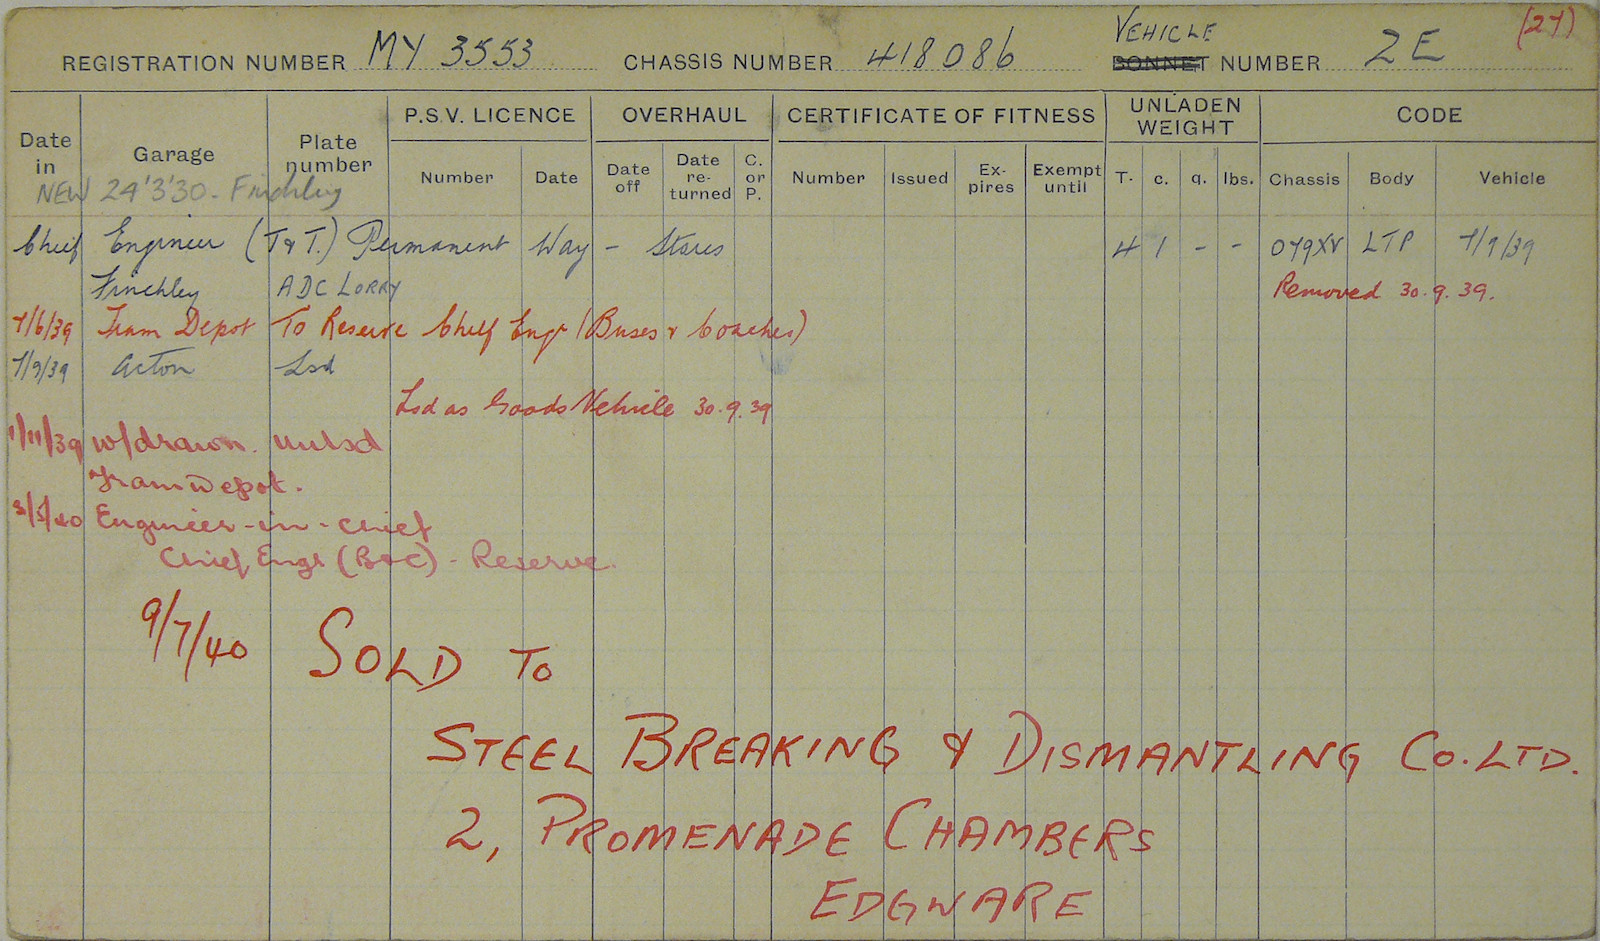 REGISTRATION NUMBER MY 3553 CHASSIS NUMBER 418086 VEHICLE BONNET NUMBER 2E (27)
Date in Garage Plate number P.S.V. LICENCE OVERHAUL CERTIFICATE OF FITNESS UNLADEN WEIGHT CODE
Number Date Date off Date re-turned C. or P. Number Issued Ex-pires Exempt until T. c. q. lbs. Chassis Body Vehicle
NEW 24'3'30 - Finchley
Chief Engineer (T & T.) Permanent Way - Stores 4 1 - - 079XV LTP 7/9/39
Finchley ADC LORRY Removed 30.9.39.
7/6/39 Tram Depot To Reserve Chief Engr (Buses & Coaches)
7/9/39 Acton Lsd
Lsd as Goods Vehicle 30.9.39
1/11/39 w/drawn. unlsd
Tram Depot.
3/5/40 Engineer-in-chief
Chief Engr (B&C) - Reserve.
9/7/40 SOLD TO
STEEL BREAKING & DISMANTLING CO. LTD.
2, PROMENADE CHAMBERS
EDGWARE